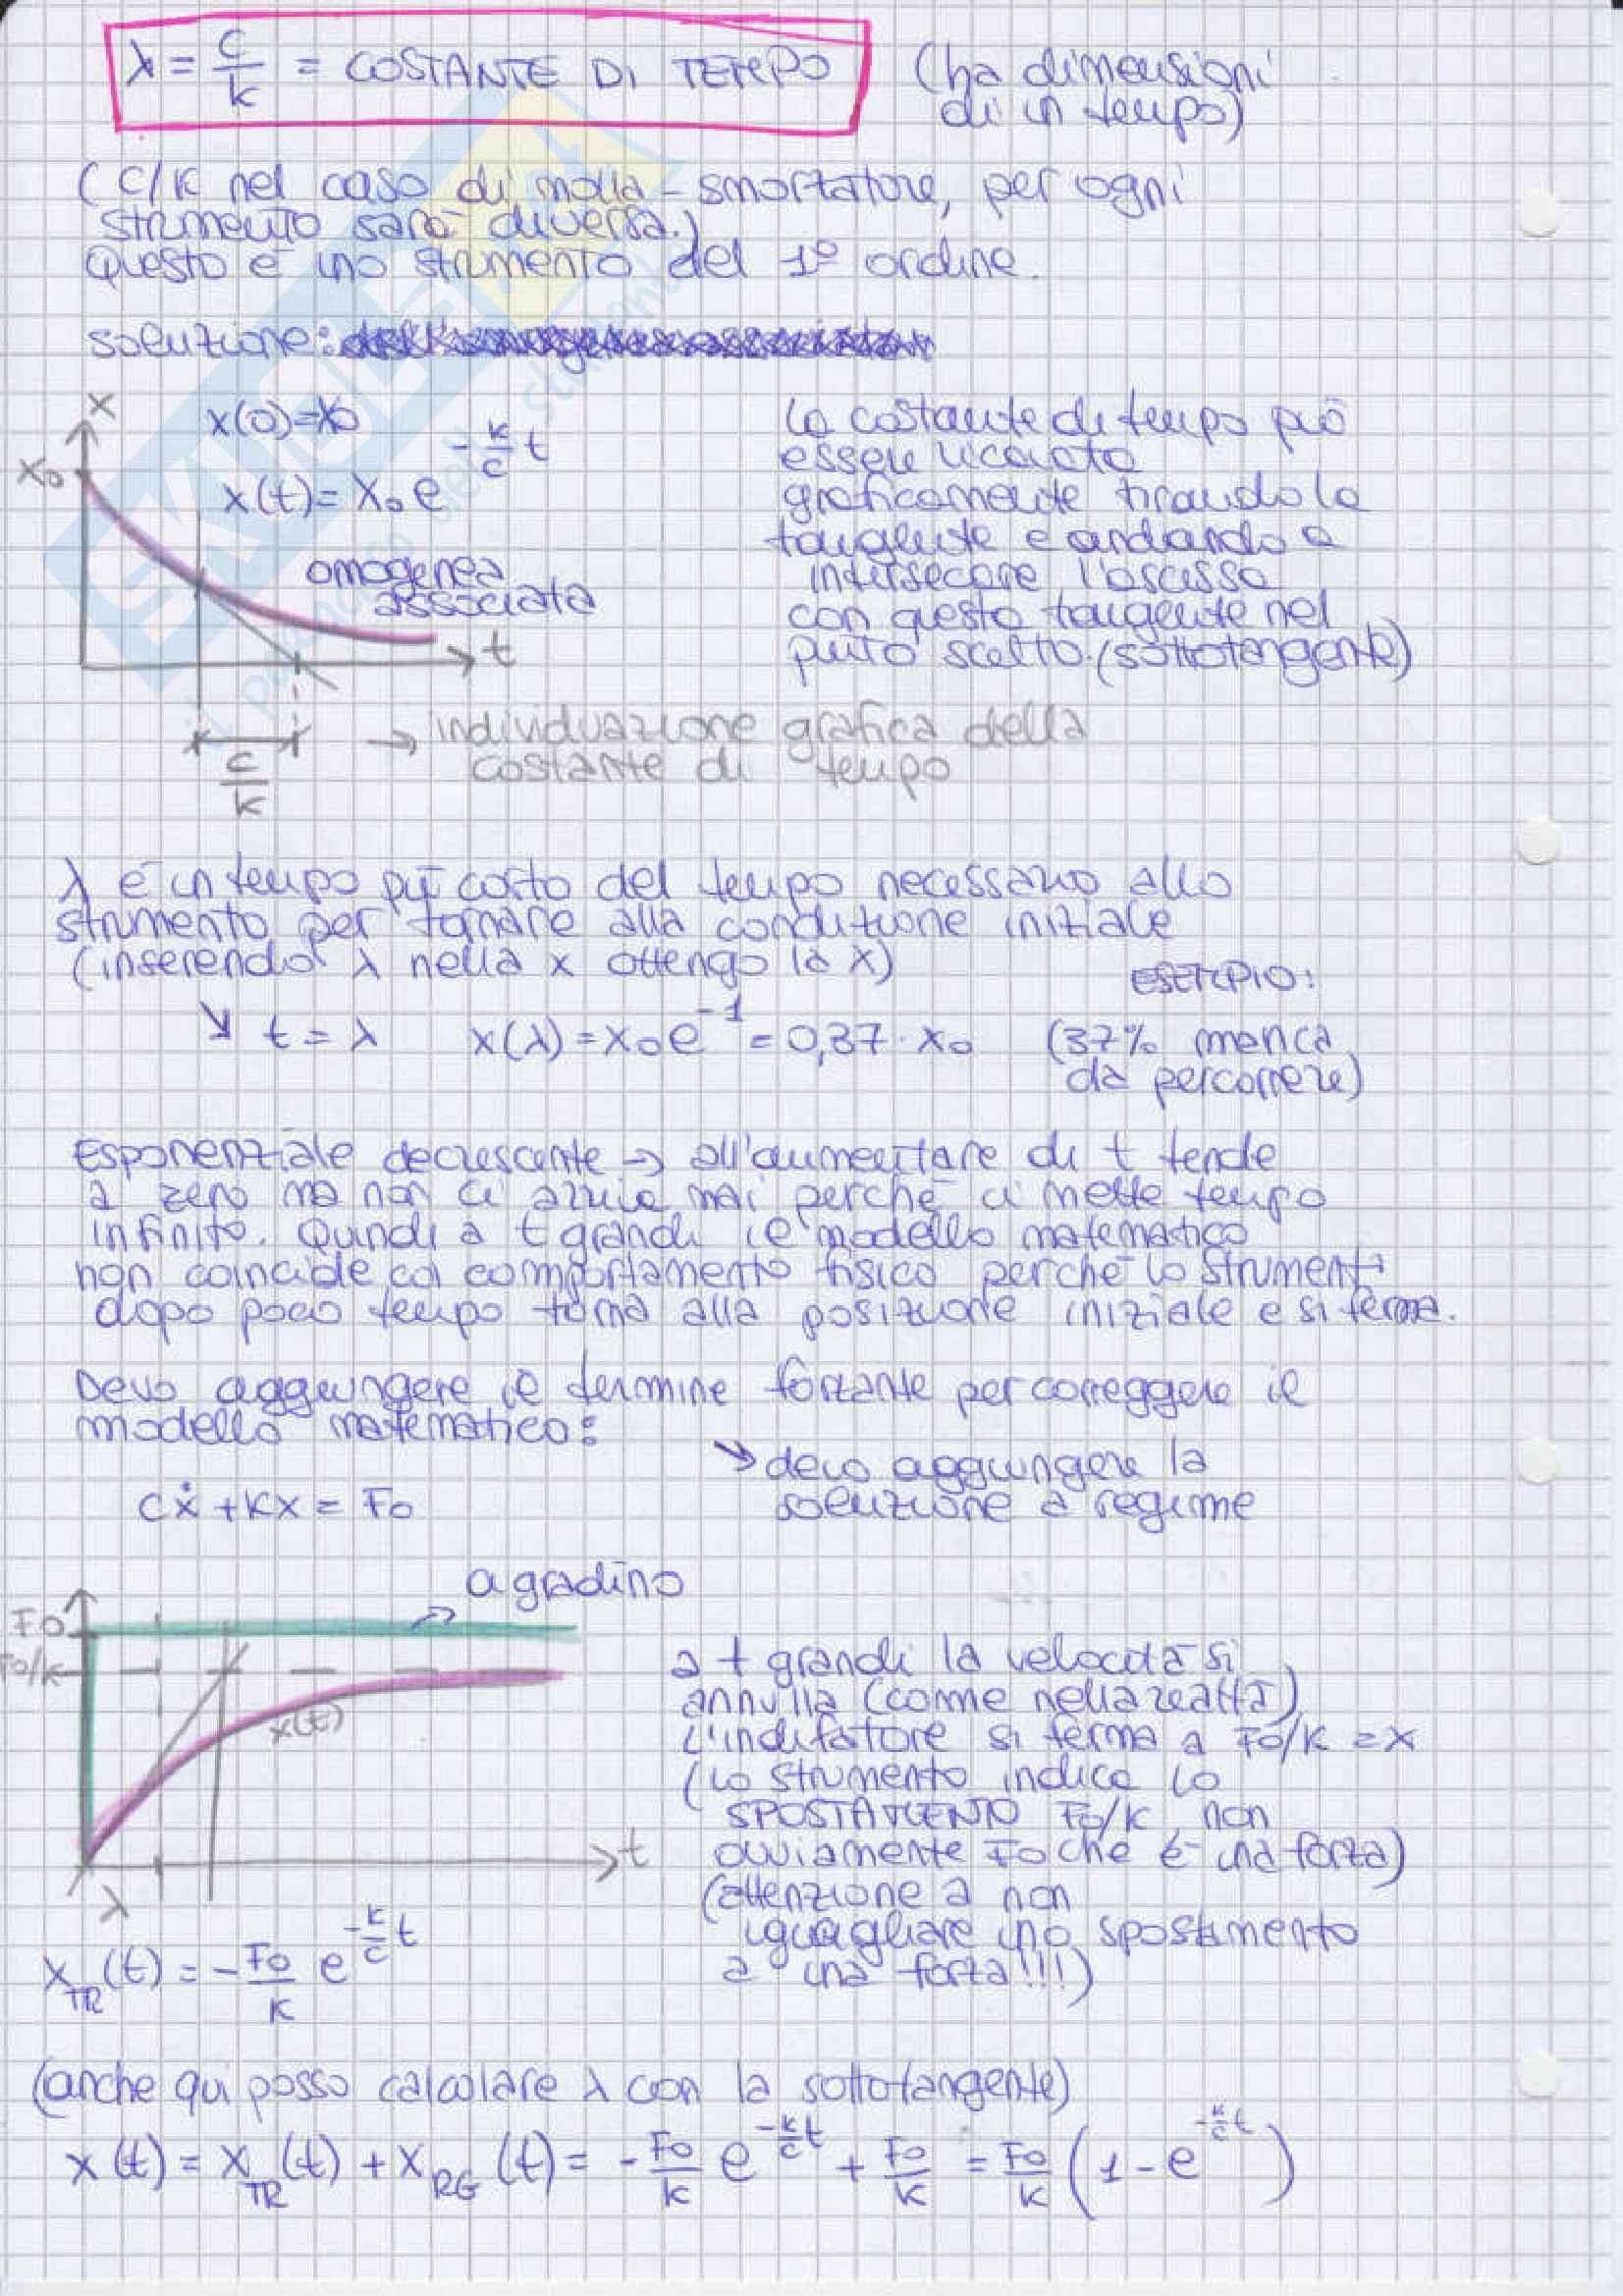 λ = c/k = COSTANTE DI TEMPO (ha dimensioni
di un tempo)
(C/K nel caso di molla-smorzatore, per ogni
strumento sarà diversa.)
Questo è uno strumento del 1º ordine.
soluzione:
x
x(0)=x0
x0
x(t)= x0 e^(-k/c t)
omogenea
associata
t
c/k
La costante di tempo può
essere ricavata
graficamente tirando la
tangente e andando a
intersecare l'ascissa
con questa tangente nel
punto scelto. (sottotangente)
→ individuazione grafica della
costante di tempo
λ è un tempo più corto del tempo necessario allo
strumento per tornare alla condizione iniziale
(inserendo λ nella x ottengo la x)
ESEMPIO:
↘ t = λ x(λ) = x0 e^-1 = 0,37 · x0 (37% manca
da percorrere)
Esponenziale decrescente → all'aumentare di t tende
a zero ma non ci arriva mai perchè ci mette tempo
infinito. Quindi a t grandi il modello matematico
non coincide col comportamento fisico perchè lo strumento
dopo poco tempo torna alla posizione iniziale e si ferma.
Devo aggiungere il termine forzante per correggere il
modello matematico:
↘ devo aggiungere la
soluzione a regime
cẋ + kx = F0
a gradino
F0
F0/k
x(t)
t
λ
a t grandi la velocità si
annulla (come nella realtà)
L'indicatore si ferma a F0/k = x
(lo strumento indica lo
SPOSTAMENTO F0/k, non
ovviamente F0 che è una forza)
(attenzione a non
uguagliare uno spostamento
a una forza!!!)
xTR(t) = - F0/k e^(-k/c t)
(anche qui posso calcolare λ con la sottotangente)
x(t) = xTR(t) + xRG(t) = - F0/k e^(-k/c t) + F0/k = F0/k (1 - e^(-k/c t))